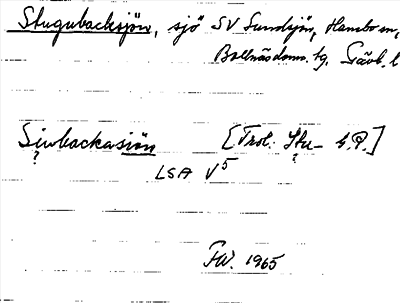 Stugubacksjön, sjö SV Sundsjön, Hanebo sn,
Bollnäs doms. tg. Gävb. l
Siwbackasiön [Trol. Stu- G.P.]
?
LSA V5
F.W. 1965